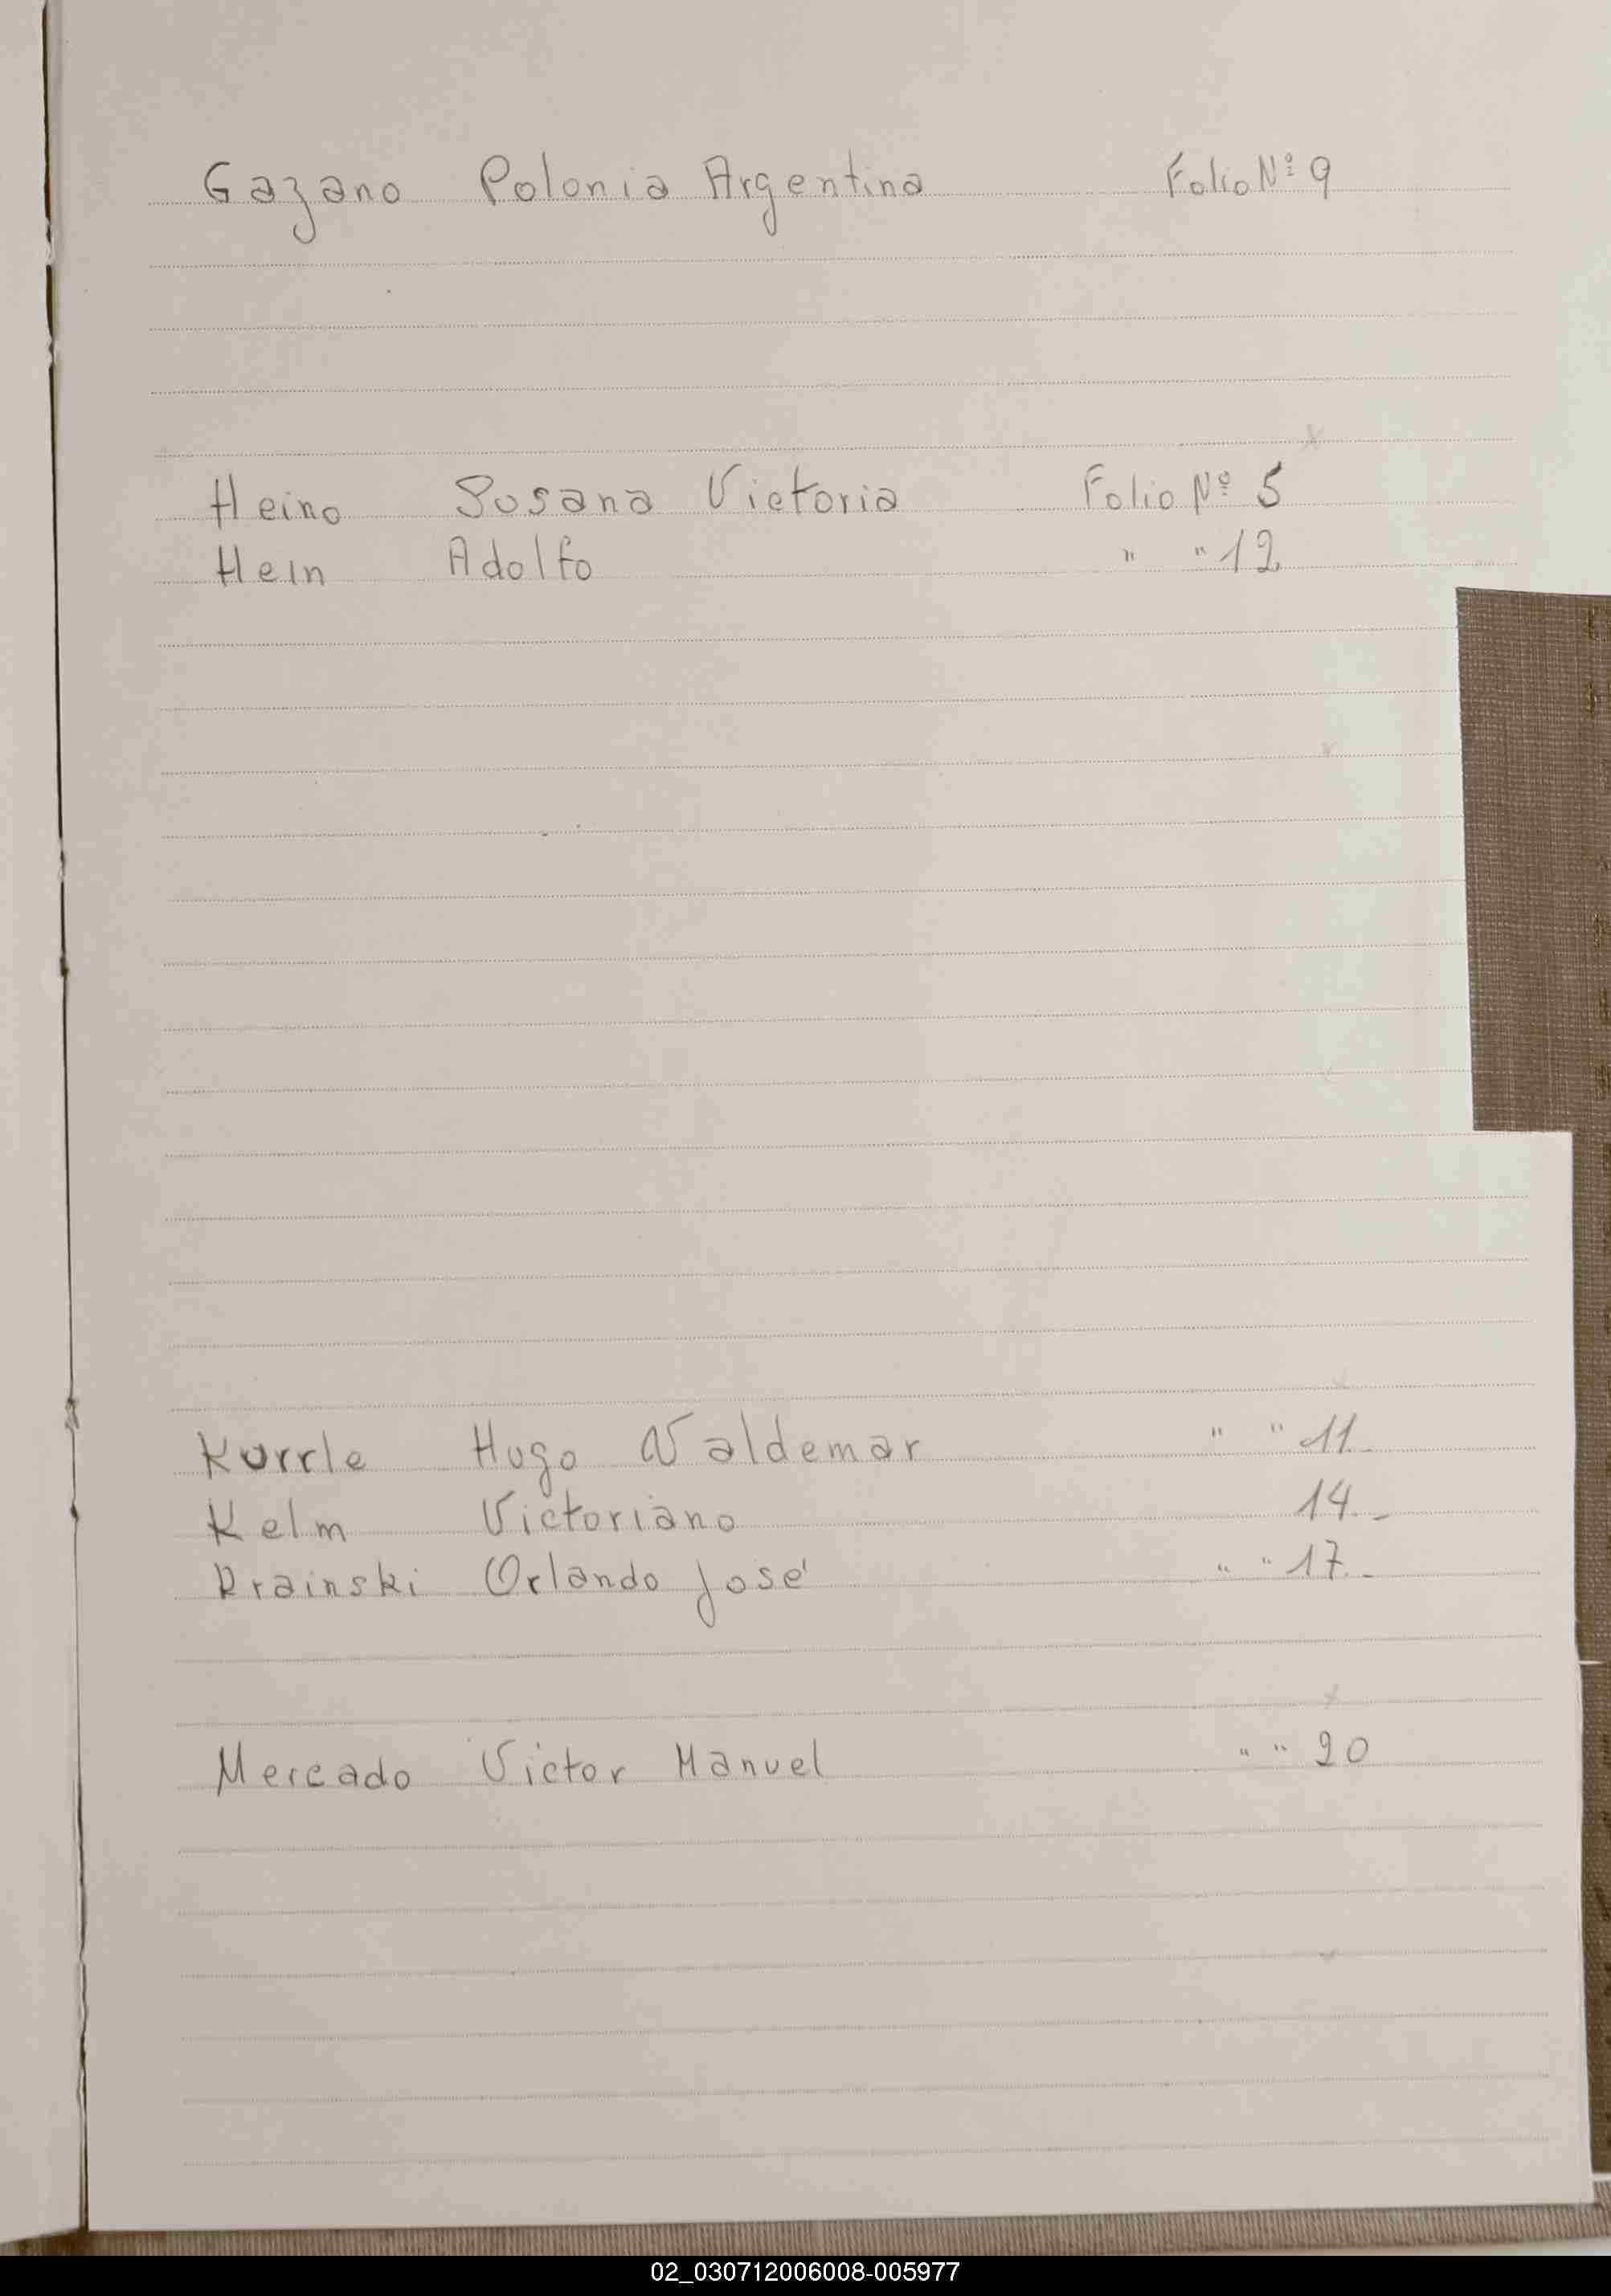 Gazano Polonia Argentina Folio Nº 9
Heino Susana Victoria Folio Nº 5
Hein Adolfo " " 12
Kurrle Hugo Waldemar " " 11
Kelm Victoriano 14.-
Krainski Orlando José " " 17.-
Mercado Victor Manuel " " 20
02_030712006008-005977